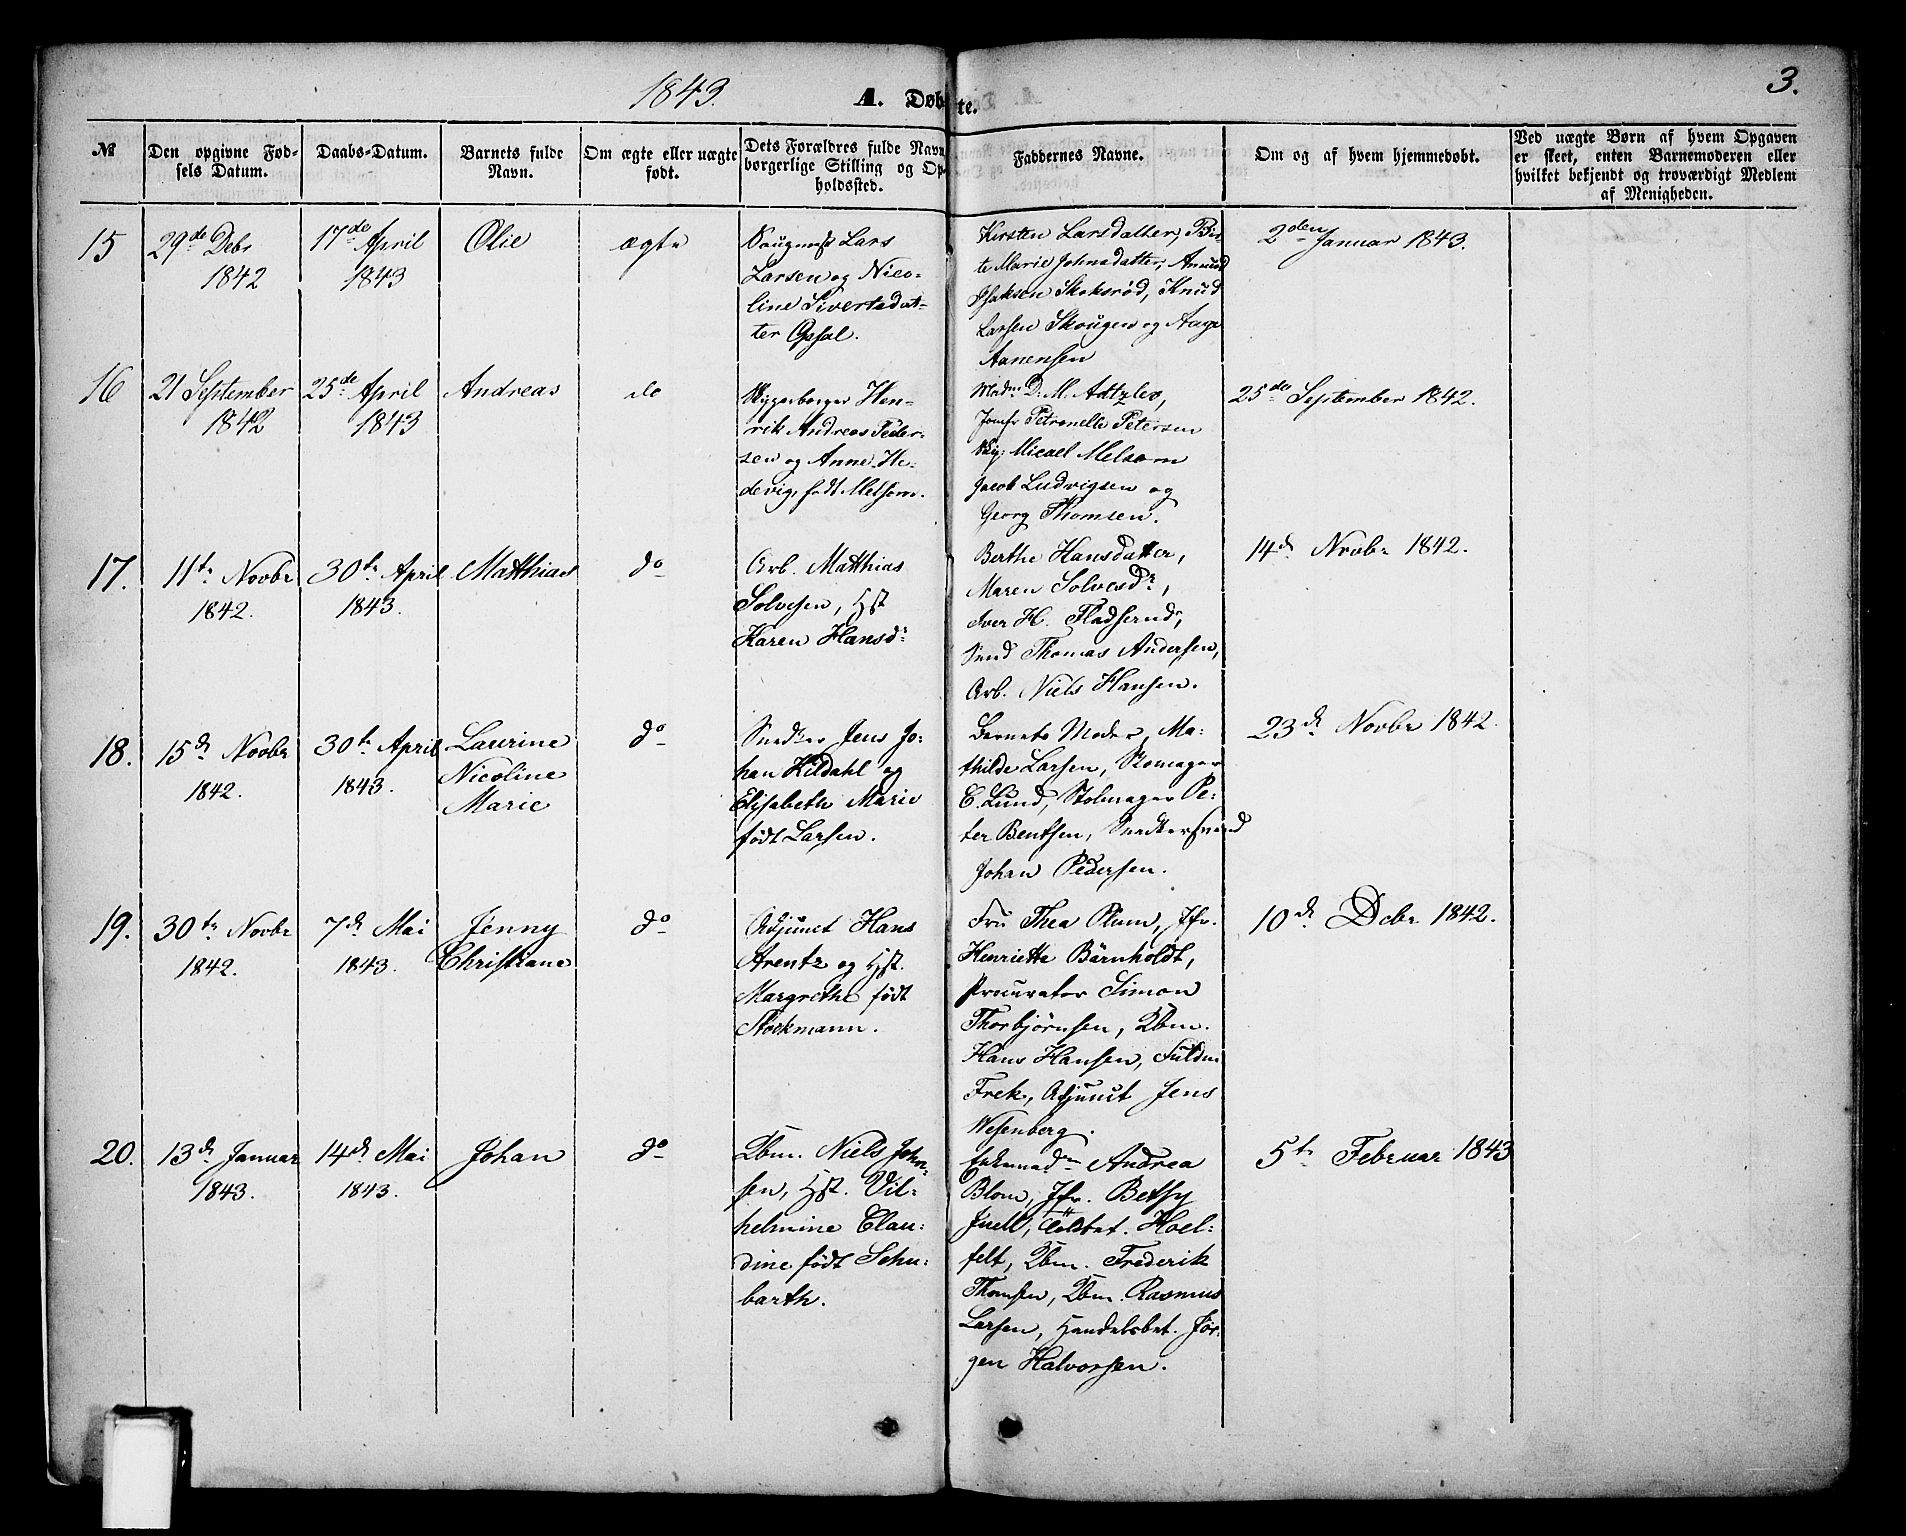 1843.
A. Døbte.
3.
№
Den opgivne Fødsels Datum.
Daabs-Datum.
Barnets fulde Navn.
Om ægte eller uægte født.
Dets Forældres fulde Navn, borgerlige Stilling og Opholdssted.
Faddernes Navne.
Om og af hvem hjemmedøbt.
Ved uægte Børn af hvem Opgaven er skeet, enten Barnemoderen eller hvilket bekjendt og troværdigt Medlem af Menigheden.
15
29de Debr
1842
17de April
1843
Olie
ægte
Lars
Larsen og Nico-
line Sivertsdat-
ter Opsal.
Kirsten Larsdatter, Bir-
te Marie Johnsdatter, Amund
Isaksen Skoksrød, Knud
Larsen Skougen og Aage
Aanensen
2den Januar 1843.
16
21 September
1842
25de April
1843
Andreas
do
Skipperborger Hen-
rik Andreas Peder-
sen og Anne He-
devig, født Melsom.
Madm D. M. Adtzlev,
Jomfr Petronelle Petersen
Skip: Micael Melsom
Jacob Ludvigsen og
Georg Thomsen.
25de September 1842.
17.
11te Novbr
1842.
30te April
1843.
Matthias
do
Arb. Matthias
Solvesen, Hst
Karen Hansdr
Berthe Hansdatter,
Maren Solvesdr,
Iver H. Fladsrud,
Svend Thomas Andersen,
Arb. Niels Hansen.
14d Novbr 1842.
18.
15d Novbr
1842.
30te April
1843.
Laurine
Nicoline
Marie
do
Snedker Jens Jo-
han Kildahl og
Elisabeth Marie
født Larsen.
Barnets Moder, Ma-
thilde Larsen, Skomager
C. Lund, Stolmager Pe-
ter Bentsen, Snedkersvend
Johan Pedersen.
23d Novbr 1842.
19.
30te Novbr
1842.
7d Mai
1843.
Jenny
Christiane
do
Adjunct Hans
Arentz og Hst.
Margrethe født
Stockmann.
Fru Thea Plum, Jfr.
Henriette Bärnholdt,
Procurator Simon
Thorbjörnsen, Skbm.
Hans Hansen, Fuldm
Frek, Adjunct Jens
Wesenberg.
10d Debr 1842.
20.
13d Januar
1843.
14d Mai
1843.
Johan
do
Skbm. Niels John-
sen, Hst. Vil-
helmine Clau-
dine født Schu-
barth.
Enkemadm Andrea
Blom, Jfr. Betsy
Juell, Toldbet. Hoel-
felt, Skbm. Frederik
Thomsen, Skbm. Rasmus
Larsen, Handelsbet. Jør-
gen Halvorsen.
5te Februar 1843